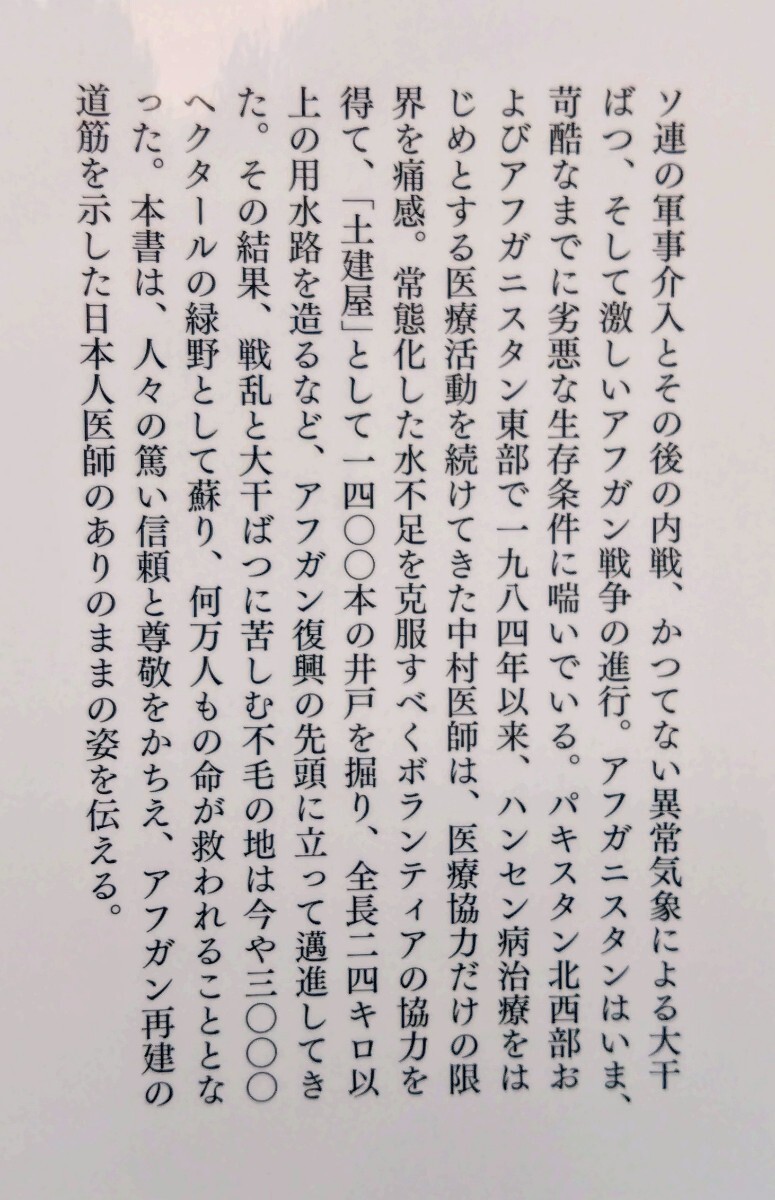 ソ連の軍事介入とその後の内戦、かつてない異常気象による大干
ばつ、そして激しいアフガン戦争の進行。アフガニスタンはいま、
苛酷なまでに劣悪な生存条件に喘いでいる。パキスタン北西部お
よびアフガニスタン東部で一九八四年以来、ハンセン病治療をは
じめとする医療活動を続けてきた中村医師は、医療協力だけの限
界を痛感。常態化した水不足を克服すべくボランティアの協力を
得て、「土建屋」として一四〇〇本の井戸を掘り、全長二四キロ以
上の用水路を造るなど、アフガン復興の先頭に立って邁進してき
た。その結果、戦乱と大干ばつに苦しむ不毛の地は今や三〇〇〇
ヘクタールの緑野として蘇り、何万人もの命が救われることとな
った。本書は、人々の篤い信頼と尊敬をかちえ、アフガン再建の
道筋を示した日本人医師のありのままの姿を伝える。